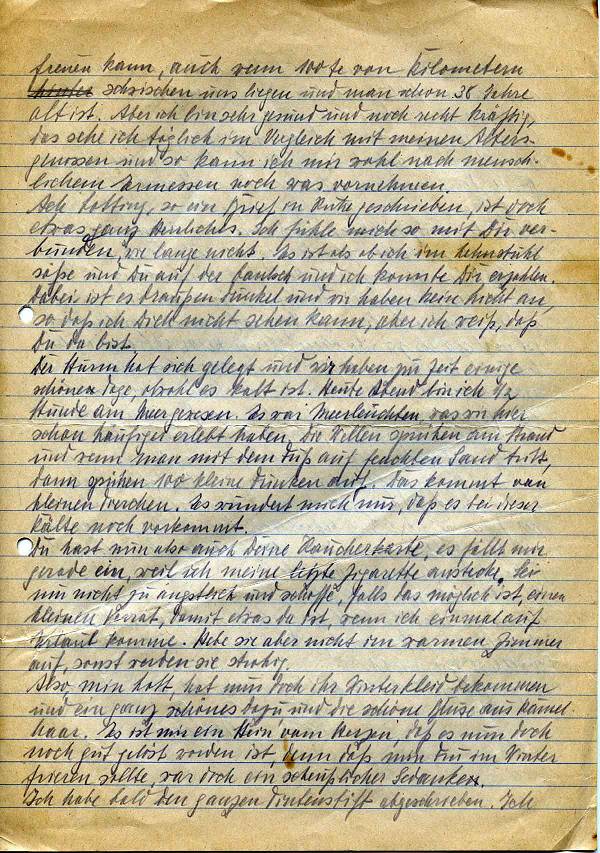 freuen kann, auch wenn 100te von Kilometern
zwischen uns liegen und man schon 38 Jahre
alt ist. Aber ich bin sehr gesund und noch recht kräftig,
das sehe ich täglich im Vergleich mit meinen Alters-
genossen und so kann ich mir wohl nach mensch-
lichem Ermessen noch was vornehmen.
Ach, so ein Brief in Ruhe geschrieben, ist doch
etwas ganz Herrliches. Ich fühle mich so mit Dir ver-
bunden, wie lange nicht. Es ist als ob ich im Lehnstuhl
säße und Du auf der Couch und ich könnte Dir erzählen.
Dabei ist es draußen dunkel und wir haben kein Licht an,
so daß ich Dich nicht sehen kann, aber ich weiß, daß
Du da bist.
Der Sturm hat sich gelegt und wir haben zur Zeit einige
schöne Tage, obwohl es kalt ist. Heute Abend bin ich 1/2
Stunde am Meer gewesen. Es war Meerleuchten, was wir hier
schon häufiger erlebt haben. Die Wellen sprühen am Strand
und wenn man mit dem Fuß auf feuchten Sand tritt,
dann sprühen 100 kleine Funken auf. Das kommt von
kleinen Tierchen. Es wundert mich nur, daß es bei dieser
Kälte noch vorkommt.
Du hast nun also auch Deine Raucherkarte, es fällt mir
gerade ein, weil ich meine letzte Zigarette anstecke. Sei
nun nicht zu ängstlich und schaffe, falls das möglich ist, einen
kleinen Vorrat, damit etwas da ist, wenn ich einmal auf
Urlaub komme. Hebe sie aber nicht im warmen Zimmer
auf, sonst werden sie strohig.
Also min hat nun doch ihr Winterkleid bekommen
und ein ganz schönes dazu und die schöne Bluse aus Kamel-
haar. Es ist mir ein Stein vom Herzen, daß es nun doch
noch gut gelöst worden ist, denn daß nun Du im Winter
frieren sollte, war doch ein scheußlicher Gedanke.
Ich habe bald den ganzen Tintenstift abgeschrieben. Ich